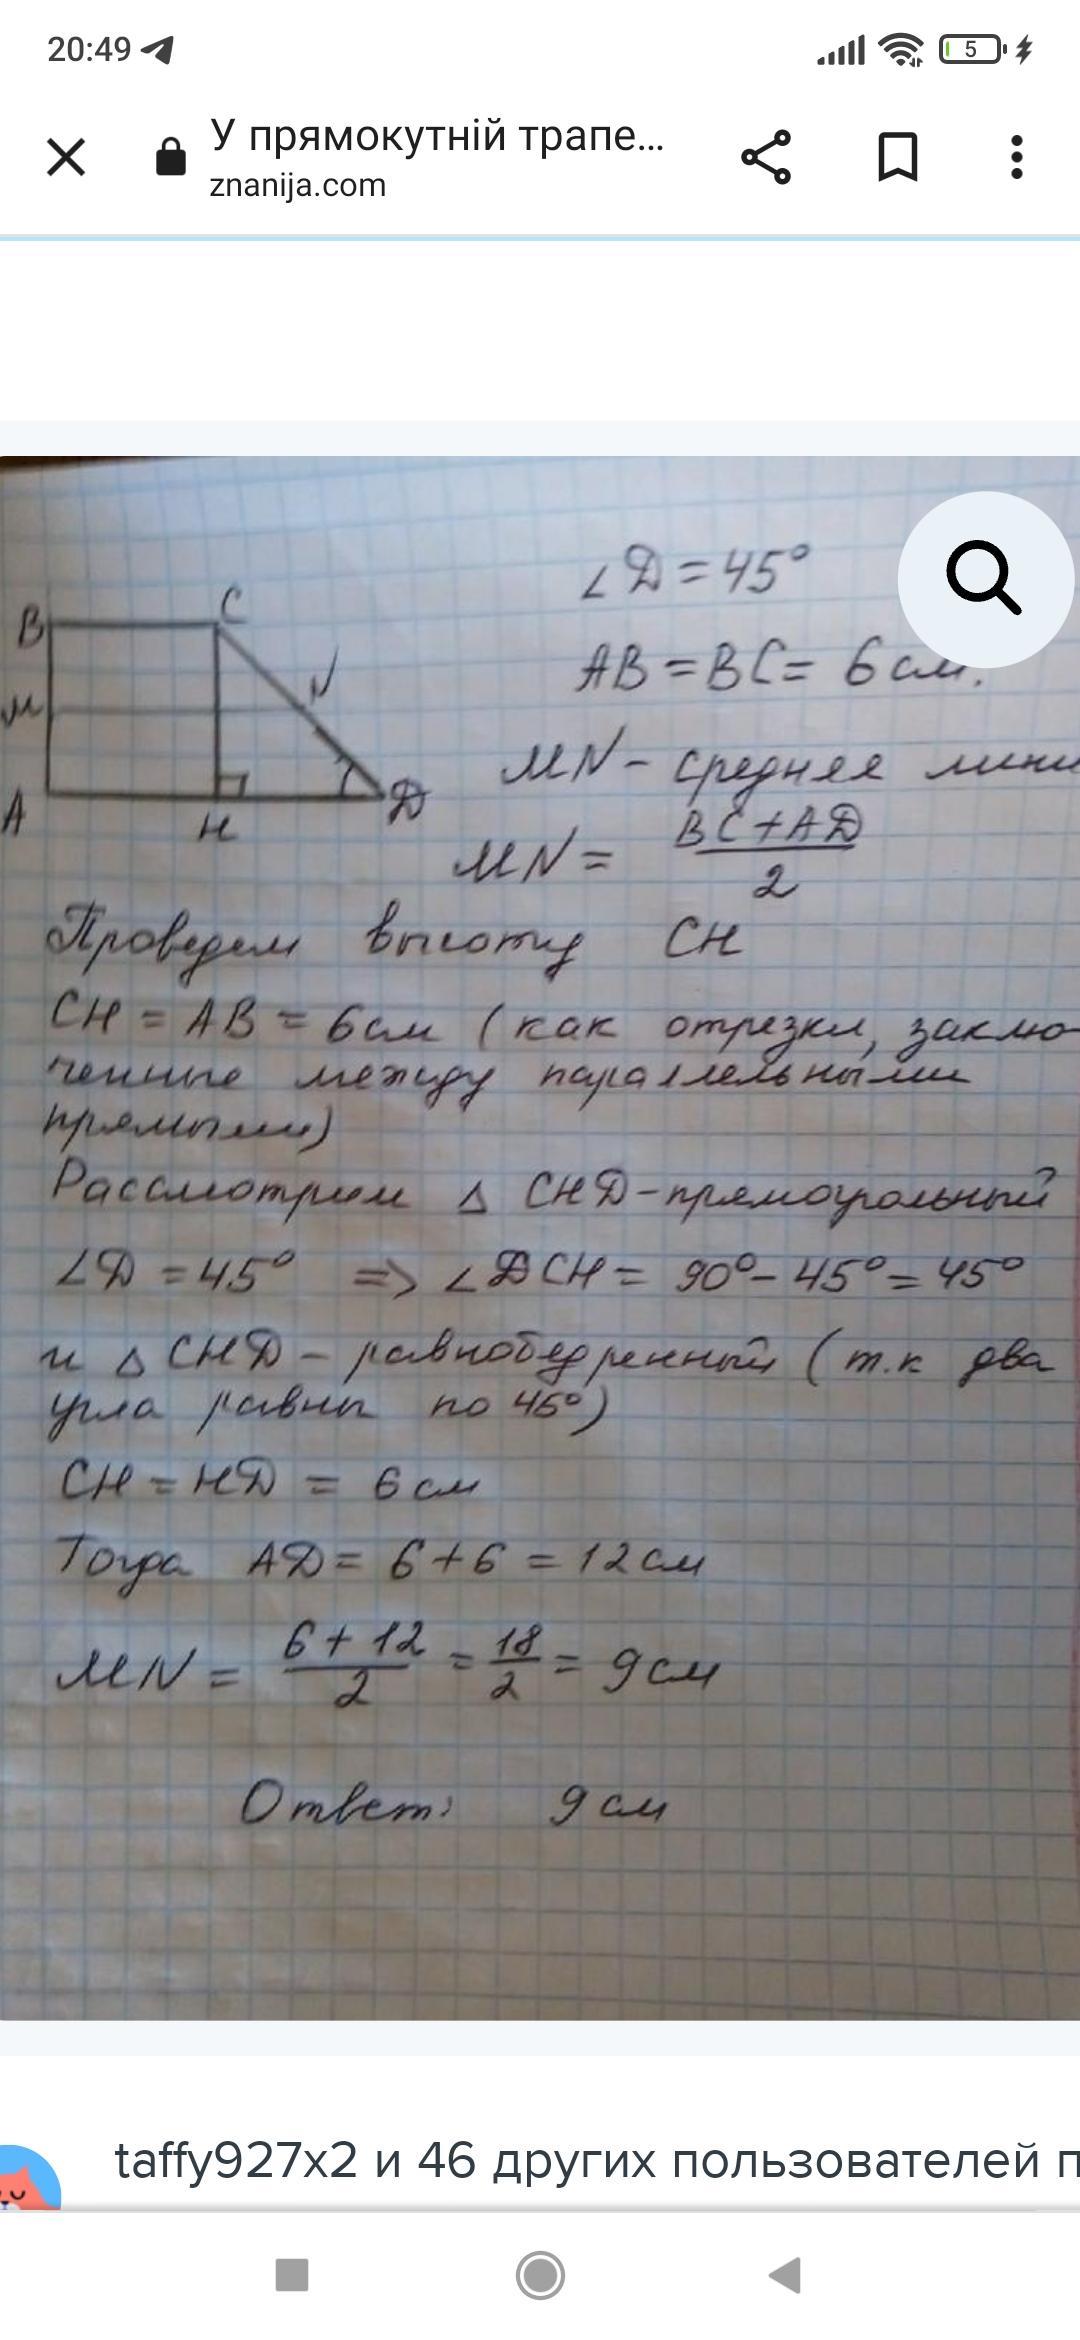 20:49
5
У прямокутній трапе...
znanija.com
∠D = 45°
AB = BC = 6 см.
B
C
M
N
A
H
D
MN - средняя лини
MN = (BC + AD)/2
Проведем высоту CH
CH = AB = 6 см (как отрезки, заклю-
ченные между параллельными
прямыми)
Рассмотрим Δ CHD - прямоугольный
∠D = 45° => ∠DCH = 90° - 45° = 45°
и Δ CHD - равнобедренный (т.к два
угла равны по 45°)
CH = HD = 6 см
Тогда AD = 6 + 6 = 12 см
MN = (6 + 12)/2 = 18/2 = 9 см
Ответ: 9 см
taffy927x2 и 46 других пользователей п